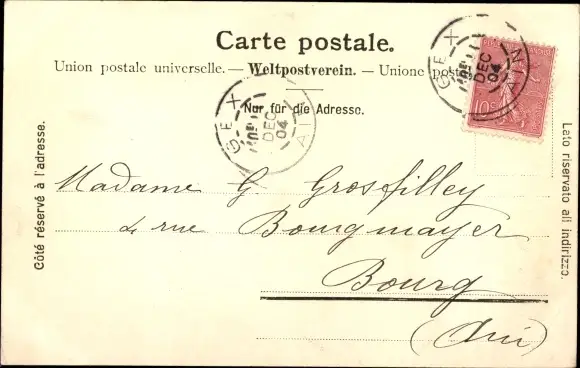 Carte postale.
Union postale universelle. — Weltpostverein. — Unione postale
Nur für die Adresse.
Côté réservé à l'adresse.
Lato riservato all indirizzo.
GEX
DEC
04
AIN
GEX
DEC
04
AIN
10c
Madame G Grosfilley
4 rue Bourgmayer
Bourg
(Ain)